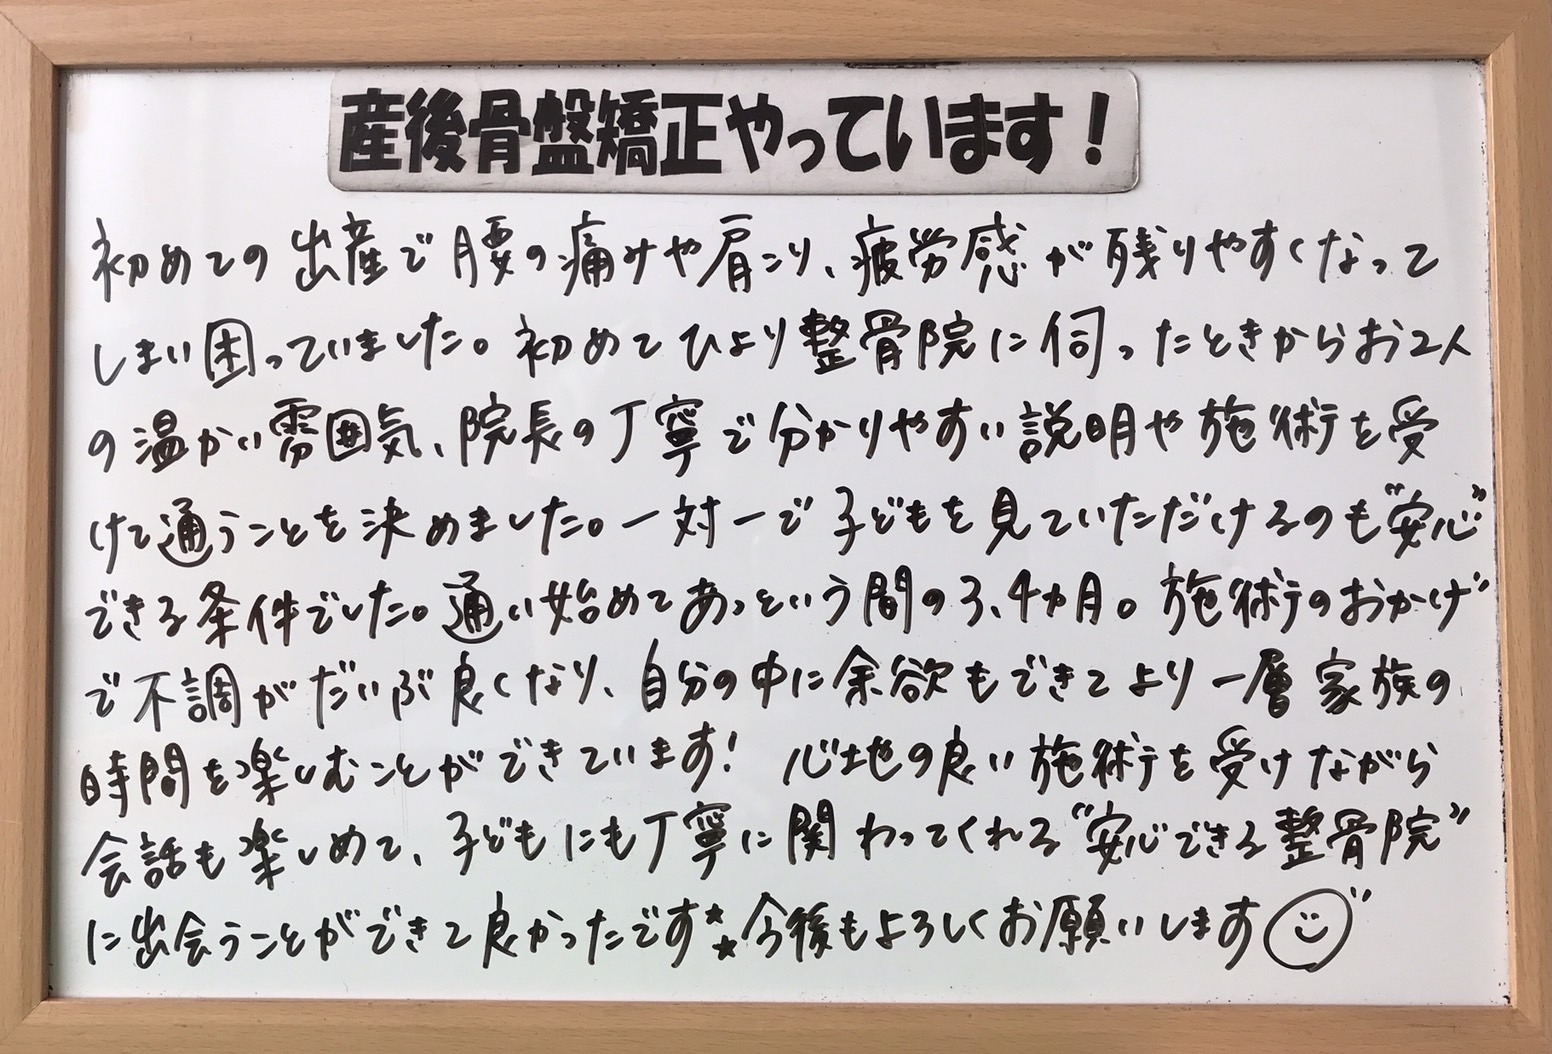 産後骨盤矯正やっています！
初めての出産で腰の痛みや肩こり、疲労感が残りやすくなって
しまい困っていました。初めてひより整骨院に伺ったときからお2人
の温かい雰囲気、院長の丁寧で分かりやすい説明や施術を受
けて通うことを決めました。一対一で子どもを見ていただけるのも"安心"
できる条件でした。通い始めてあっという間の3、4ヵ月。施術のおかげ
で不調がだいぶ良くなり、自分の中に余欲もできてより一層家族の
時間を楽しむことができています！ 心地の良い施術を受けながら
会話も楽しめて、子どもにも丁寧に関わってくれる"安心できる整骨院"
に出会うことができて良かったです★★今後もよろしくお願いします